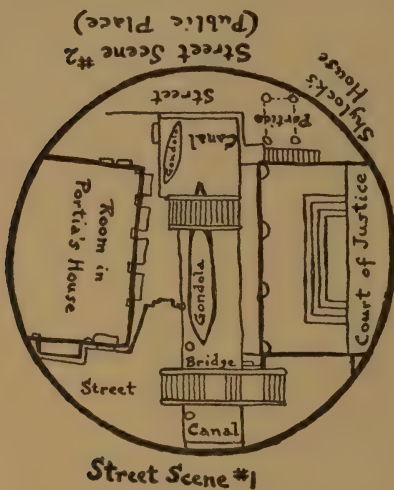 Street Scene #2
(Public Place)
Shylock's
House
Street
Portico
Canal
Gondola
Room in
Portia's House
Court of Justice
Gondola
Bridge
Street
Canal
Street Scene #1